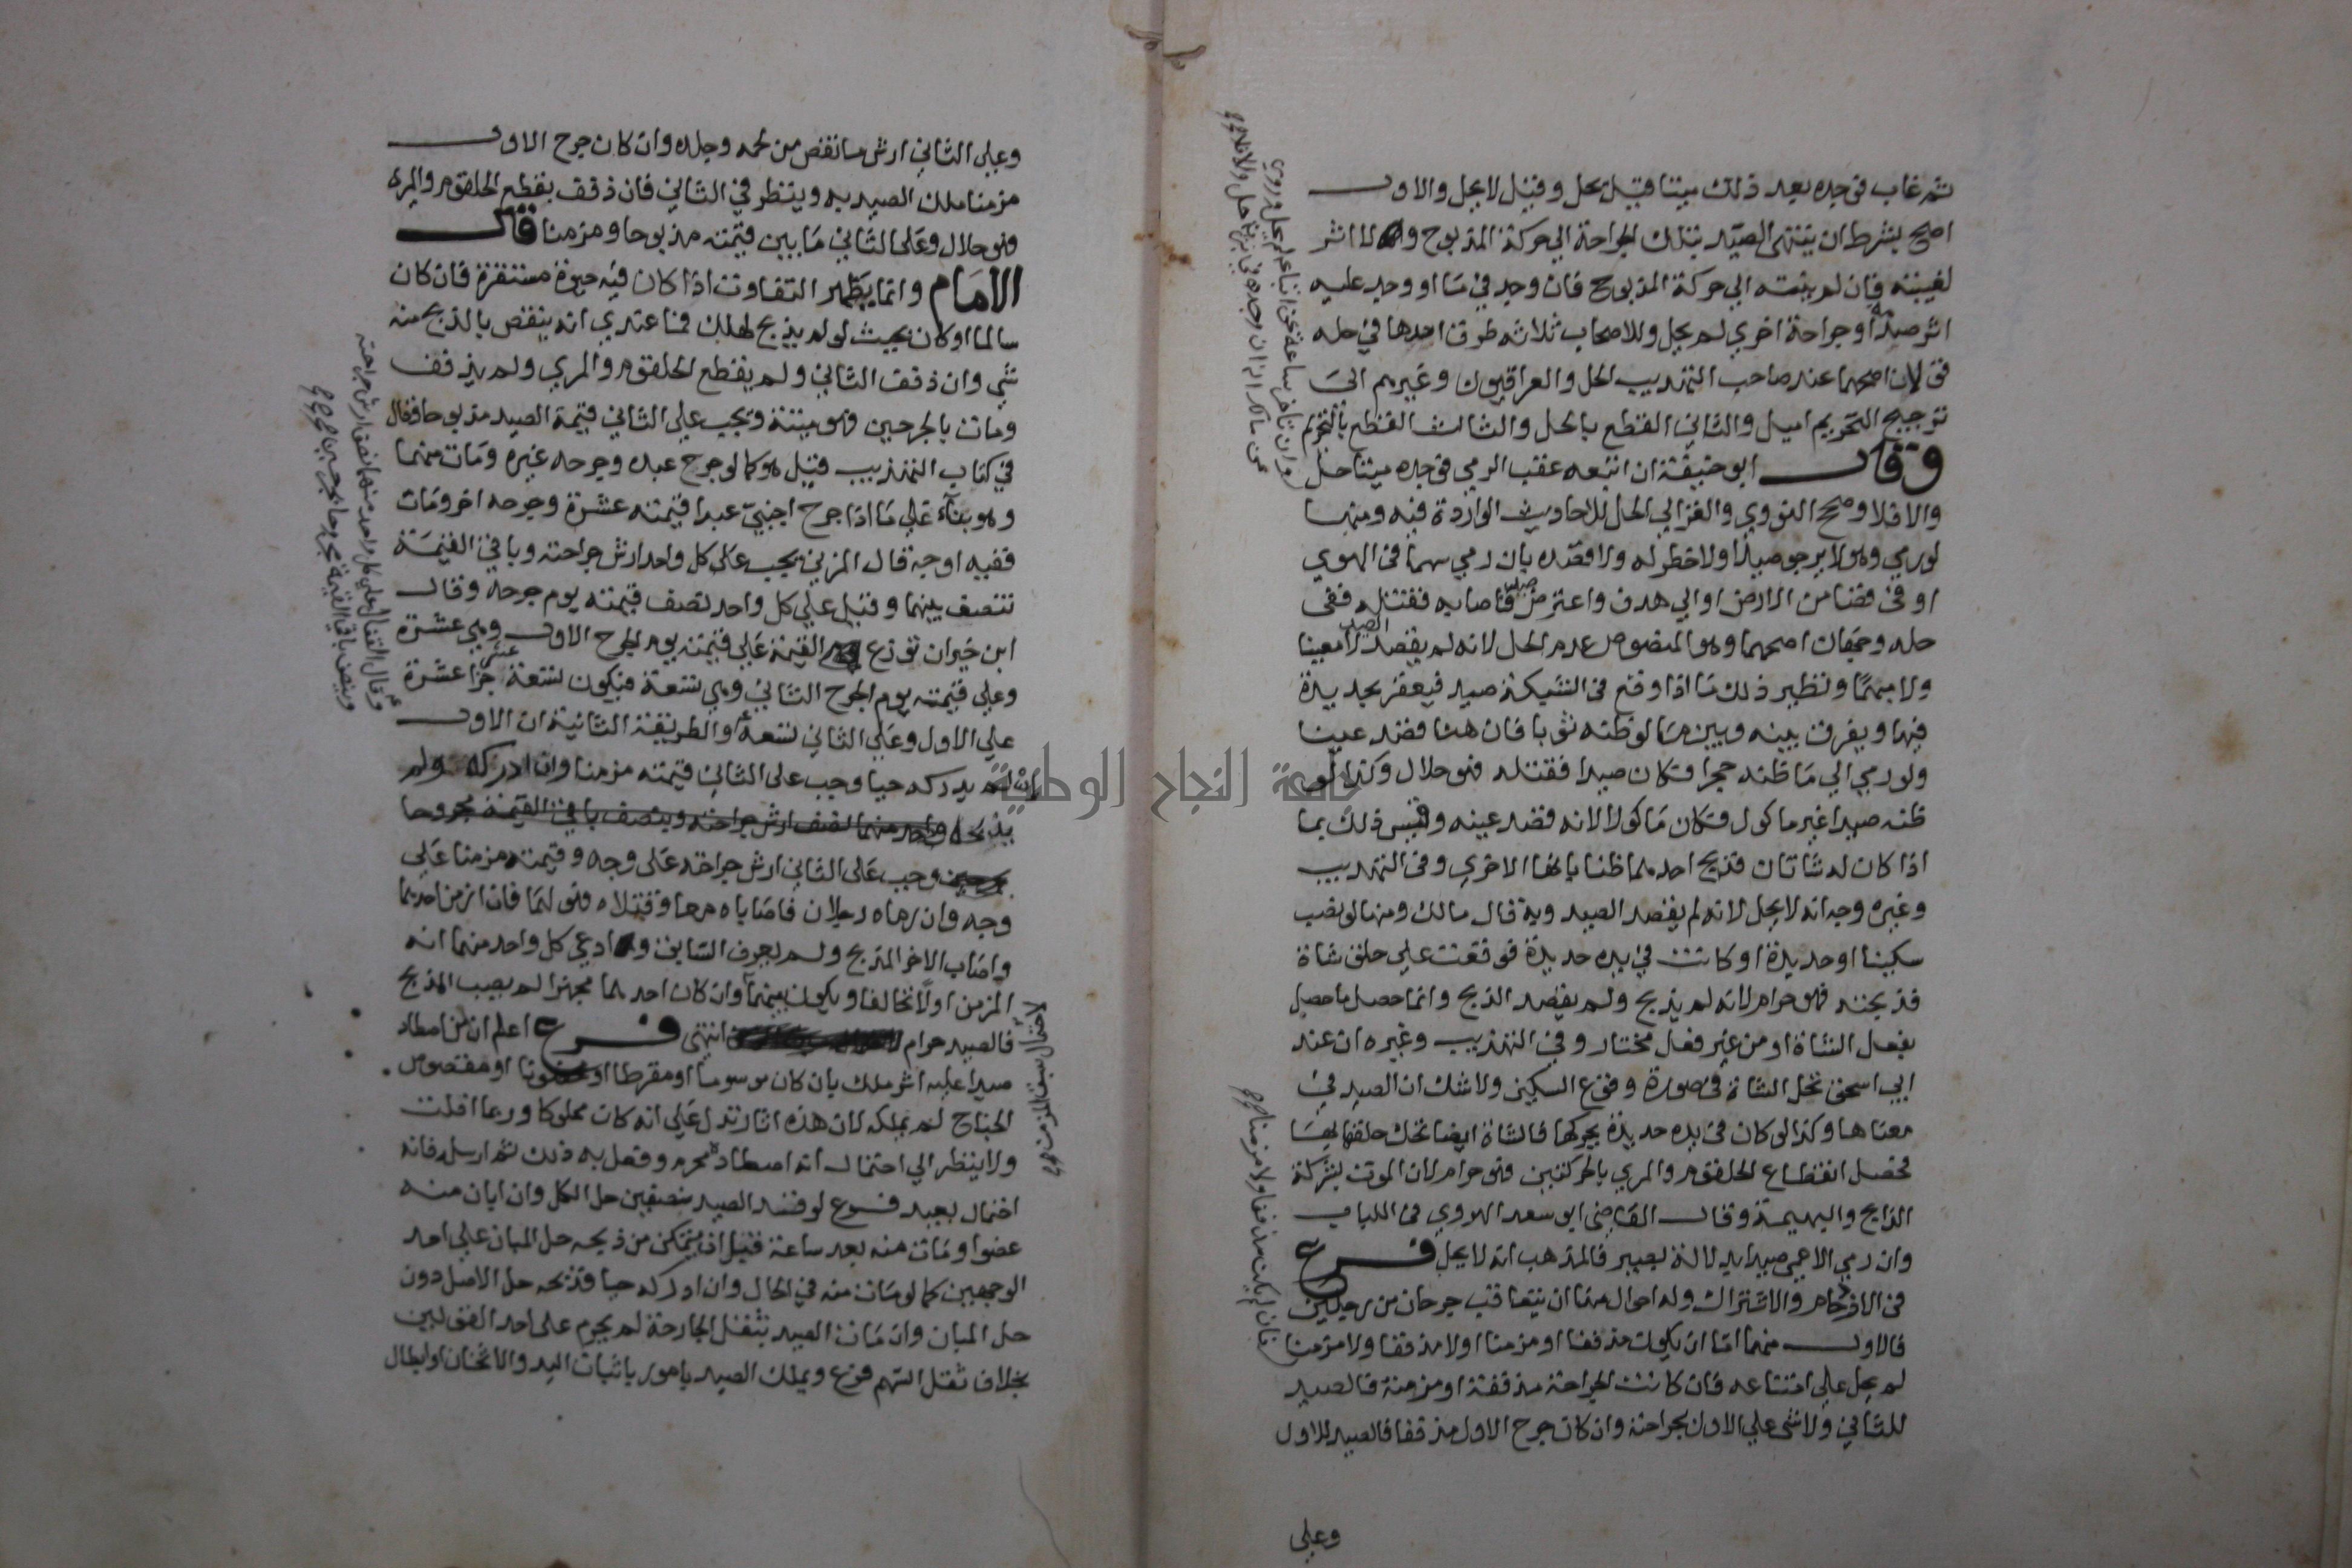 ثم غاب فوجده بعد ذلك ميتا قيل يحل وقيل لا يحل والاول
اصح بشرط ان ينتهي الصيد بتلك الجراحة الي حركة المذبوح ولا اثر
لغيبته فان لم ينته الي حركة المذبوح فان وجد في ما او وجد عليه
اثر صدمة او جراحة اخري لم يحل وللاصحاب ثلاثة طرق احدها في حله
قولان اصحهما عند صاحب التهذيب الحل والعراقيون وغيرهم الي
ترجيح التحريم اميل والثاني القطع بالحل والثالث القطع بالتحريم
وقال ابو حنيفة ان اتبعه عقب الرمي فوجده ميتا حل
والا فلا وصحح النووي والغزالي الحل للاحاديث الواردة فيه ومنها
لو رمي وهو لا يرجو صيدا ولا خطر له ولا قصده بان رمي سهما في الهوي
او في فضا من الارض او الي هدف واعترض صيد فاصابه فقتله ففي
حله وجهان اصحهما وهو المنصوص عدم الحل لانه لم يقصد الصيد لا معينا
ولا مبهما ونظير ذلك ما اذا وقع في الشبكة صيد فيعقر بحديدة
فيها ويفرق بينه وبين ما لو ظنه ثوبا فان هنا قصد عينا
ولو رمي الي ما ظنه حجرا فكان صيدا فقتله فهو حلال وكذا لو
ظنه صيدا غير ماكول فكان ماكولا لانه قصد عينه وقيس ذلك بما
اذا كان له شاتان فذبح احدهما ظنا بانها الاخري وفي التهذيب
وغيره وجه انه لا يحل لانه لم يقصد الصيد وبه قال مالك ومنها لو نصب
سكينا او حديدة او كانت في يده حديدة فوقعت علي حلق شاة
فذبحته فهو حرام لانه لم يذبح ولم يقصد الذبح وانما حصل ما حصل
بفعل الشاة او من غير فعل مختار وفي التهذيب وغيره ان عند
ابي اسحق تحل الشاة في صورة وقوع السكين ولا شك ان الصيد في
معناها وكذا لو كان في يده حديدة يحركها فالشاة ايضا تحك حلقها بها
فحصل انقطاع الحلقوم والمري بالحركتين فهو حرام لان الموت بشركة
الذابح والبهيمة وقال القاضي ابو سعد الهروي في اللباب
وان رمي الاعمي صيدا بدلالة بصير فالمذهب انه لا يحل فرع
في الازدحام والاشتراك وله احوال منها ان يتعاقب جرحان من رجلين
فالاول منهما اما ان يكون مذففا او مزمنا او لا مذففا ولا مزمنا
لم يحل علي امتناعه فان كانت الجراحة مذففة او مزمنة فالصيد
للثاني ولا شي علي الاول بجراحته وان كان جرح الاول مذففا فالصيد للاول
وعلي
وان تاخر ساعة عن اتباعه لم يحل وروي
عن مالك انه ان وجده في يومه حل والا فلا صح
فان لم يكن مذففا ولا مزمنا صح
وعلي الثاني ارش ما نقص من لحمه وجلده وان كان جرح الاول
مزمنا ملك الصيد به وينظر في الثاني فان ذفف بقطع الحلقوم والمري
فهو حلال وعلي الثاني ما بين قيمته مذبوحا ومزمنا قال
الامام وانما يظهر التفاوت اذا كان فيه حيوة مستقرة فان كان
سالما او كان بحيث لو لم يذبح لهلك فما عندي انه ينقص بالذبح منه
شي وان ذفف الثاني ولم يقطع الحلقوم والمري ولم يذفف
ومات بالجرحين فهو ميتة ويجب علي الثاني قيمة الصيد مذبوحا فقال
في كتاب التهذيب قيل هو كما لو جرح عبده وجرحه غيره ومات منهما
وهو بناء علي ما اذا جرح اجنبي عبدا قيمته عشرة وجرحه اخر ومات
ففيه اوجه قال المزني يجب علي كل واحد ارش جراحته وباقي القيمة
تنصف بينهما وقيل علي كل واحد نصف قيمته يوم جرحه وقال
ابن خيران توزع القيمة علي قيمته يوم الجرح الاول وهي عشرة
وعلي قيمته يوم الجرح الثاني وهي تسعة فيكون تسعة عشر جزا عشرة
علي الاول وعلي الثاني تسعة والطريقة الثانية ان الاول
ان لم يدركه حيا وجب علي الثاني قيمته مزمنا وان ادركه ولم
يذبحه واحد منهما نصف ارش جراحته وينصف باقي القيمة مجروحا
جرحين وجب علي الثاني ارش جراحته علي وجه وقيمته مزمنا علي
وجه وان رماه رجلان فاصاباه معا وقتلاه فهو لهما فان ازمن احدهما
واصاب الاخر المذبح ولم يعرف السابق وادعي كل واحد منهما انه
المزمن اولا تحالفا ويكون بينهما وان كان احدهما مجهزا لم يصب المذبح
فالصيد حرام انتهي فرع اعلم ان من اصطاد
صيدا عليه اثر ملك بان كان موسوما او مقرطا او مخضوبا او مقصوص
الجناح لم يملكه لان هذه اثار تدل علي انه كان مملوكا وربما افلت
ولا ينظر الي احتمال انه اصطاده محرم وفعل به ذلك ثم ارسله فانه
احتمال بعيد فرع لو قد الصيد بنصفين حل الكل وان ابان منه
عضوا ومات منه بعد ساعة قبل ان يتمكن من ذبحه حل المبان علي احد
الوجهين كما لو مات منه في الحال وان ادركه حيا فذبحه حل الاصل دون
حل المبان وان مات الصيد بثقل الجارحة لم يحرم علي احد القولين
بخلاف ثقل السهم فرع ويملك الصيد بامور باثبات اليد والاثخان او ابطال
وقال القفال علي كل واحد منهما نصف ارش جراحته
وينصف باقي القيمة مجروحا بجرحين صح
لاحتمال سبق المزمن
جامعة النجاح الوطنية